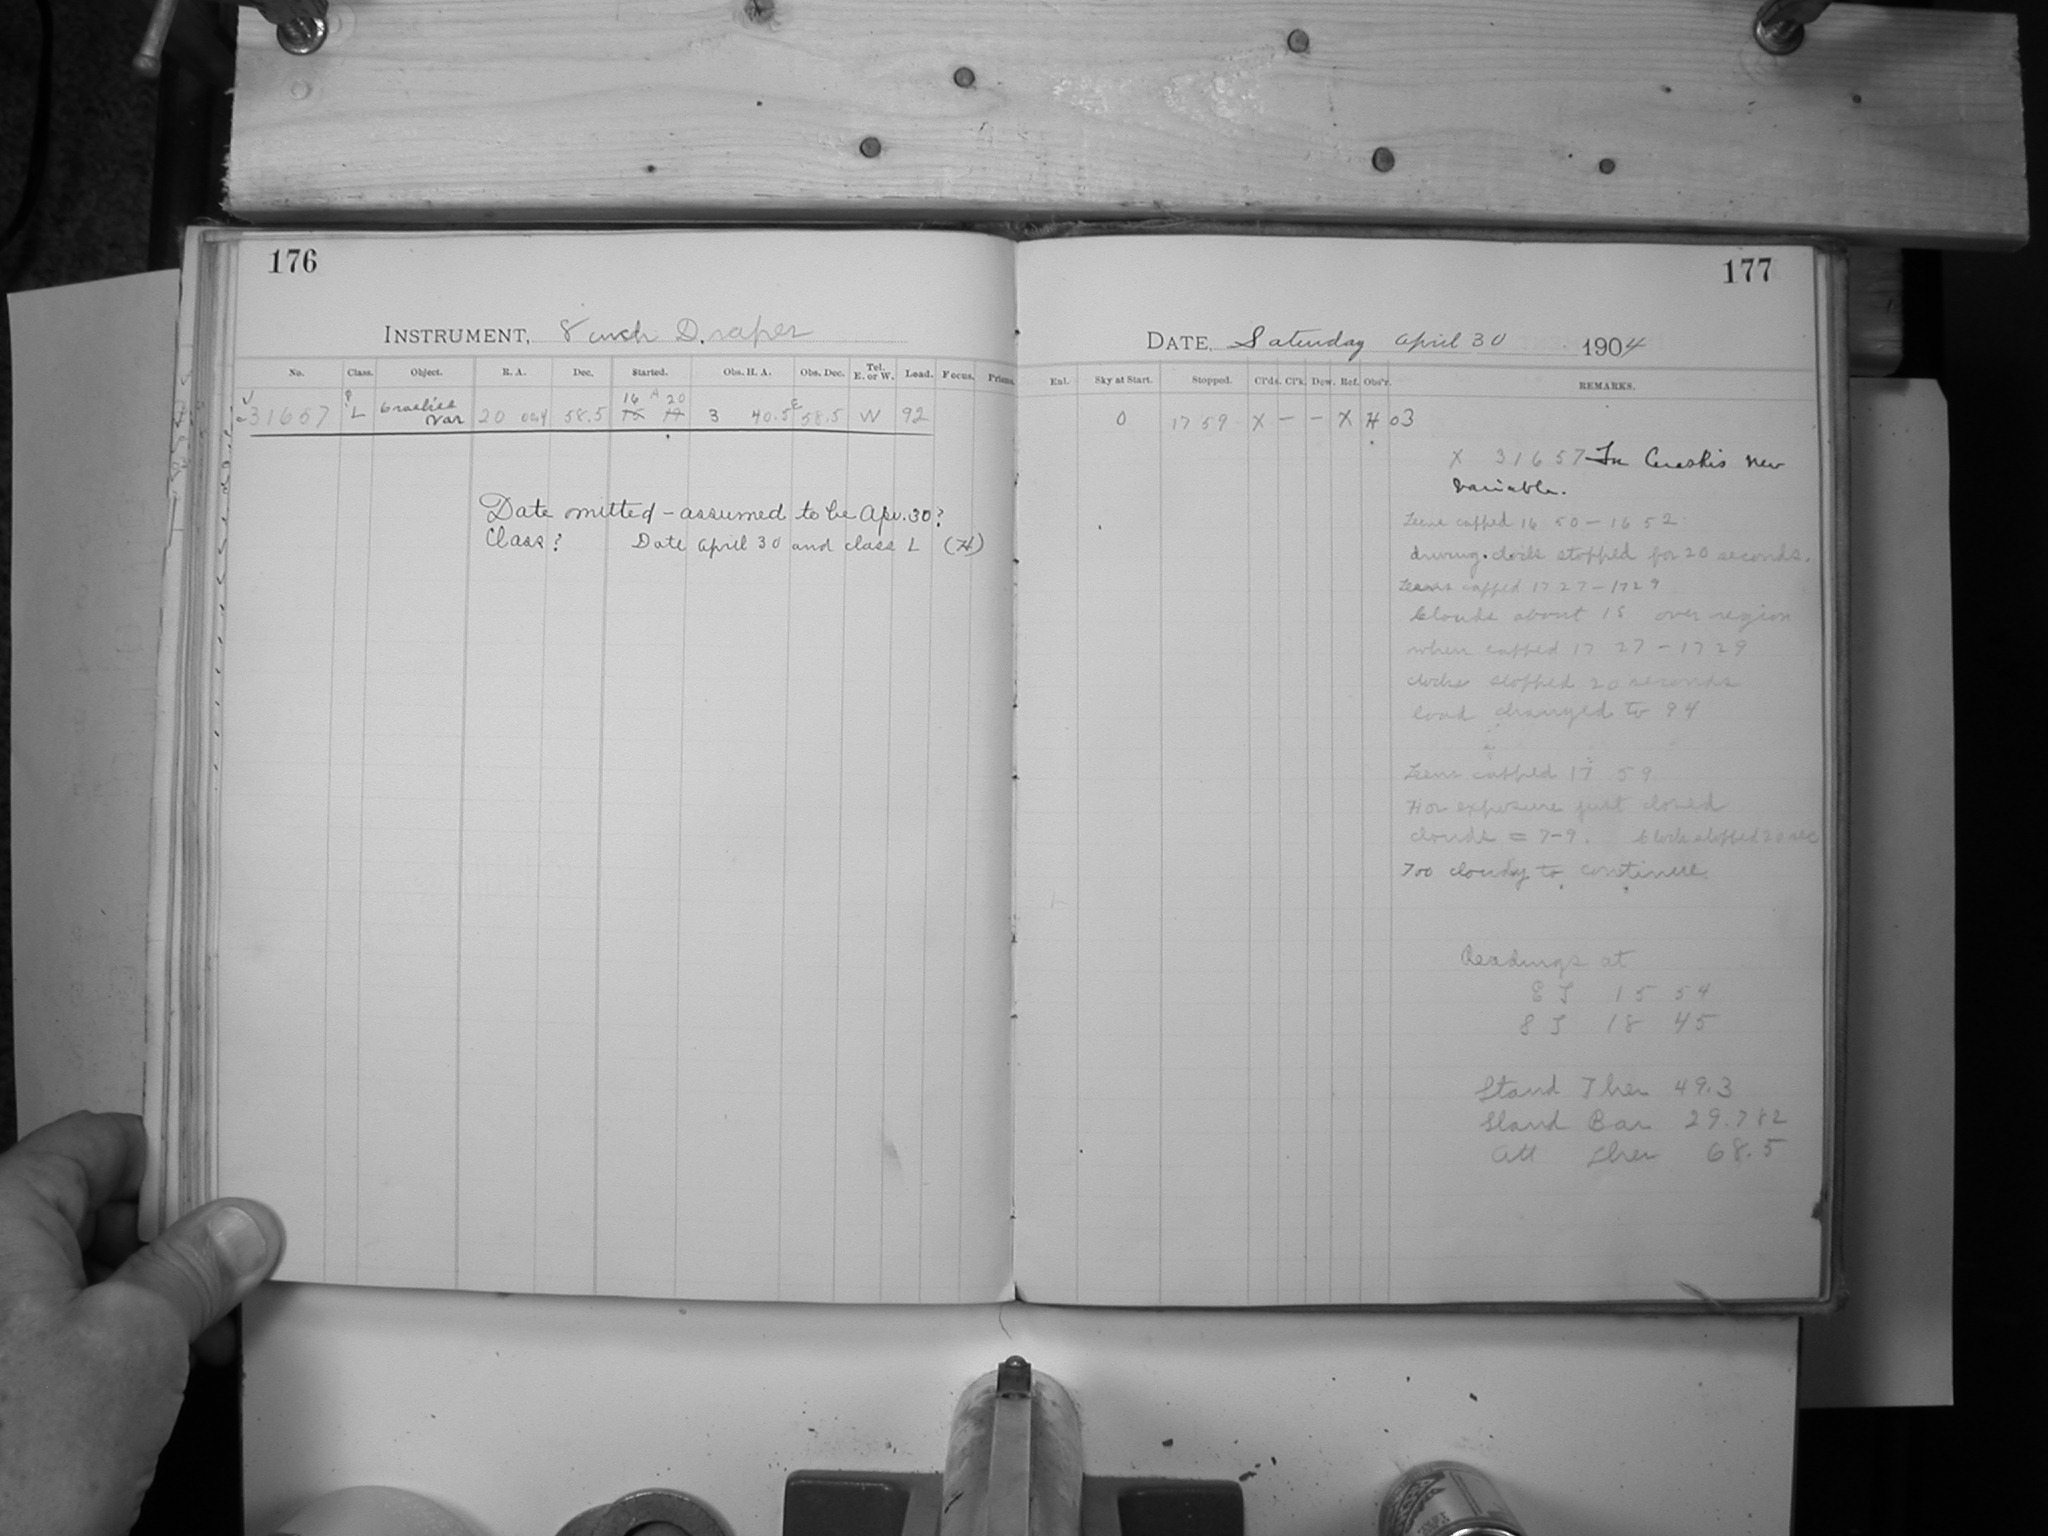 176
INSTRUMENT, 8 inch Draper
No. Class. Object. R. A. Dec. Started. Obs. H. A. Obs. Dec. Tel. E. or W. Load. Focus. Prisms.
16 20
31657 L var 20 58.5 3 40.5 58.5 W 92
Date omitted - assumed to be Apr. 30?
Class? Date April 30 and class L (H)
177
DATE, Saturday April 30 1904
Exl. Sky at Start. Stopped. Cl'ds. Cl'k. Dew. Ref. Obs'r. REMARKS.
0 17 59 X - - X H 03
X 31657 In Ceraski's new
variable.
Lens capped 16 50 - 16 52
driving clock stopped for 20 seconds.
Lens capped 17 27 - 17 29
Clouds about 15 over region
when capped 17 27 - 17 29
clock stopped 20 seconds
load changed to 94
Lens capped 17 59
For exposure just closed
clouds = 7-9. Clock stopped 20 sec
Too cloudy to continue.
Readings at
E T 15 54
S T 18 45
Stand Ther 49.3
Stand Bar 29.782
Att Ther 68.5